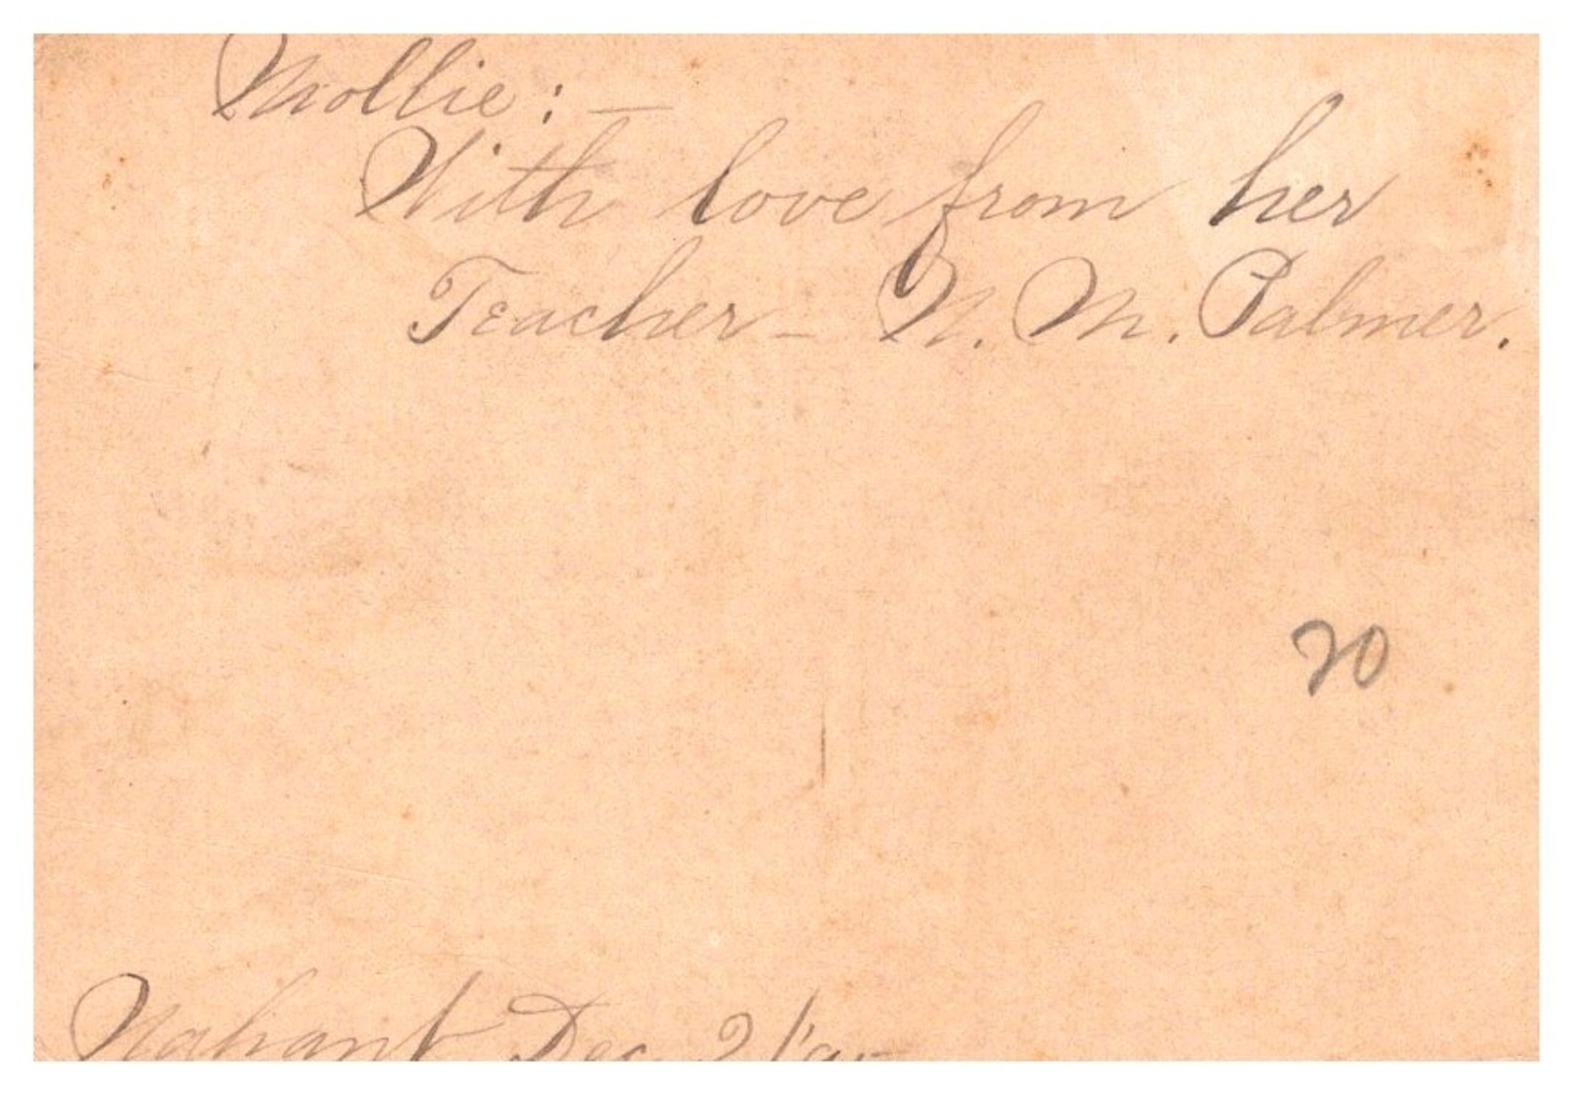 Mollie : —
With love from her
Teacher — N. M. Palmer.
20
Nahant Dec. 21